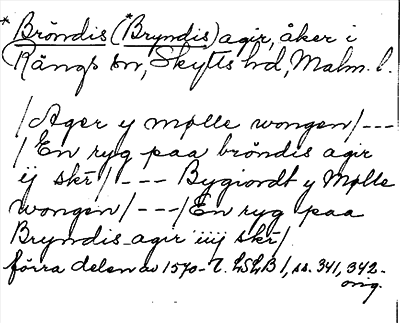 * Bröndis (*Bryndis) agir, åker i
Rängs sn, Skytts hd, Malm. l.
/Ager y mølle wongen/---
/En ryg paa bröndis agir
ij skr/ --- Bygiordt y Mølle
wongen/ ---/En ryg paa
Bryndis agir iiij skr/
förra delen av 1570-t. LSLB 1, ss. 341, 342-
orig.